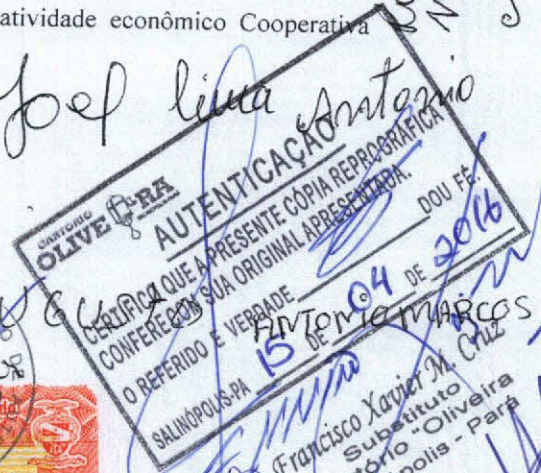 atividade econômico Cooperativa
Joel lima Antonio
CARTÓRIO
OLIVEIRA
AUTENTICAÇÃO
CERTIFICA QUE A PRESENTE CÓPIA REPROGRÁFICA
CONFERE COM SUA ORIGINAL APRESENTADA.
O REFERIDO É VERDADE DOU FÉ.
SALINÓPOLIS-PA 15 DE 04 DE 2016
Antonio MARCOS
Francisco Xavier M. Cruz
Substituto
"Oliveira
- Pará